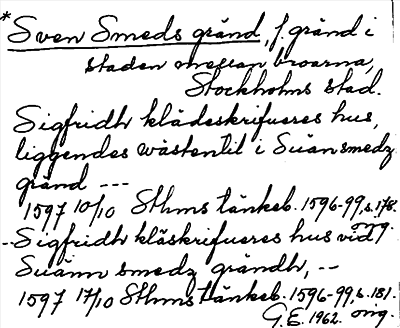 *Sven Smeds gränd, f. gränd i
staden mellan broarna,
Stockholms stad.
Sigfridh klädeskrifueres hus,
liggendes wästentil i Suänsmedz
gränd ---
1597 10/10 Sthms tänkeb. 1596-99, s. 178.
orig.
--Sigfridh kläskrifueres hus vid
Suänn smedz grändh, --
1597 17/10 Sthms tänkeb. 1596-99, s. 181.
G.E. 1962. orig.